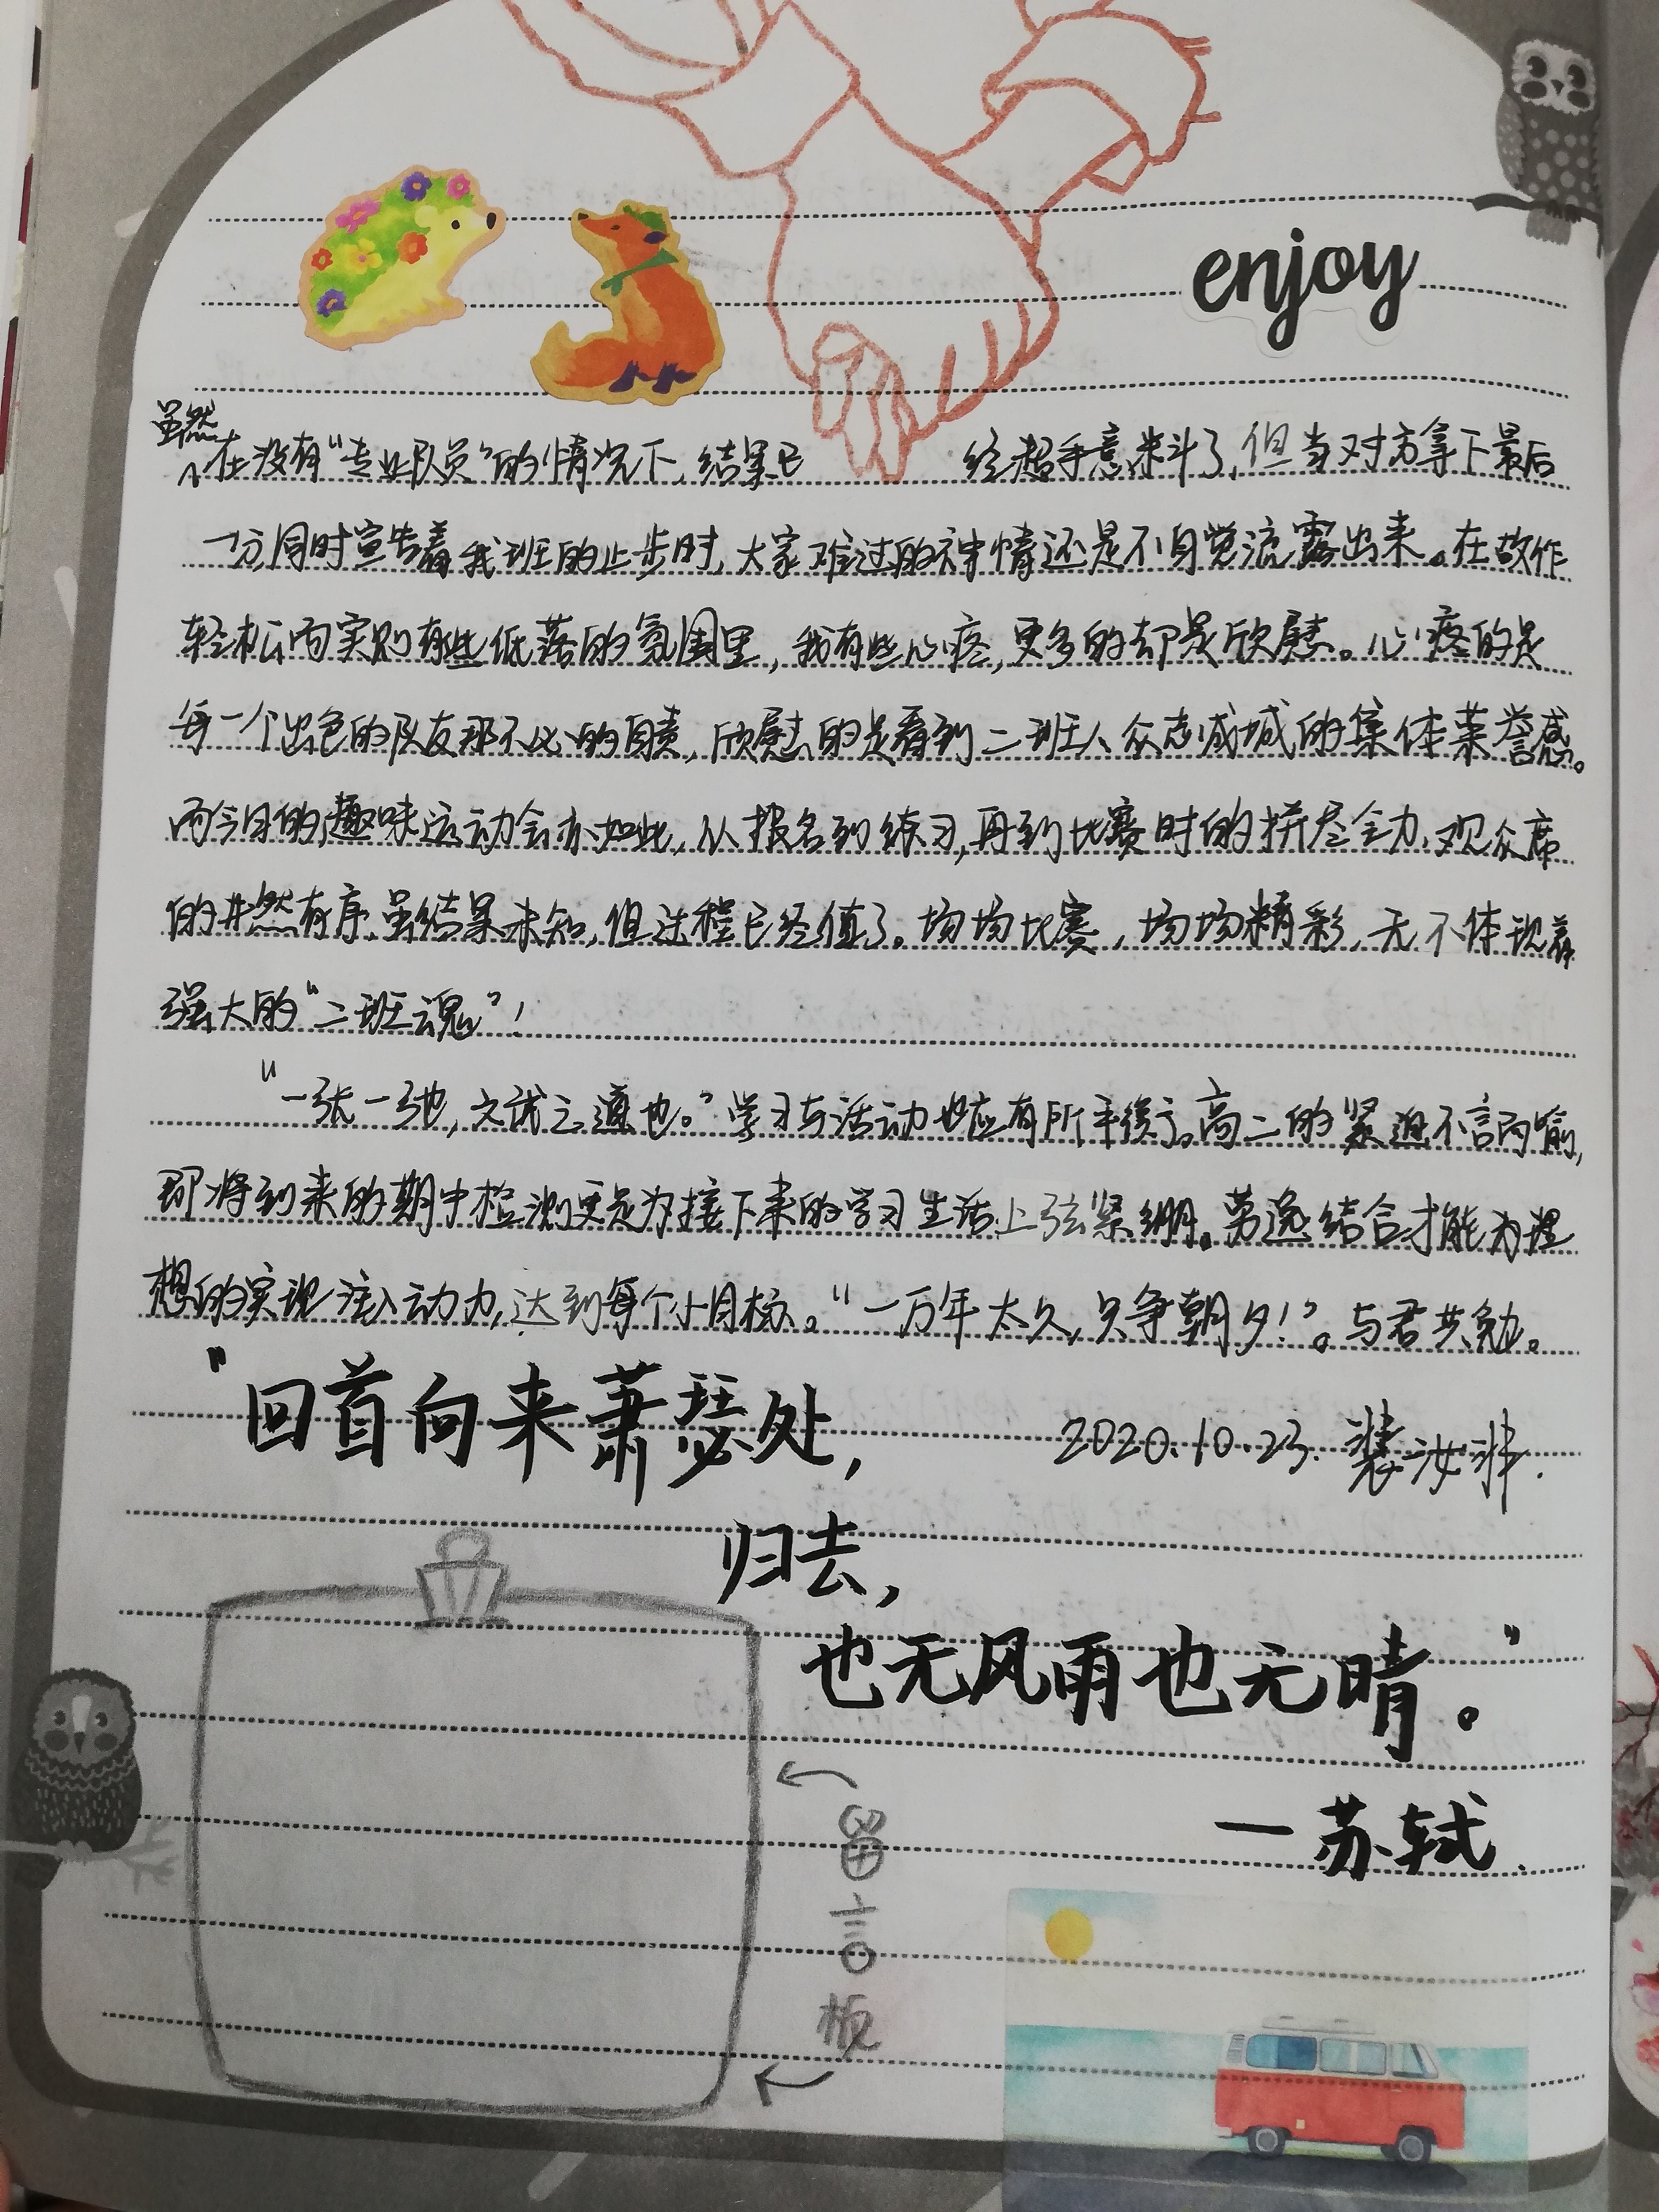 enjoy
虽然
在没有“专业队员”的情况下,结果已经超乎意料了,但当对方拿下最后
一分,同时宣告着我班的止步时,大家难过的神情还是不自觉流露出来。在故作
轻松而实则有些低落的氛围里,我有些心疼,更多的却是欣慰。心疼的是
每一个出色的队友那不必的自责,欣慰的是看到二班人众志成城的集体荣誉感。
而今日的趣味运动会亦如此,从报名到练习,再到比赛时的拼尽全力,观众席
的井然有序,虽结果未知,但过程已经值了。场场比赛,场场精彩,无不体现着
强大的“二班魂”!
“一张一弛,文武之道也。”学习与活动也应有所平衡。高二的紧迫不言而喻,
即将到来的期中检测更是为接下来的学习生活上弦紧绷。劳逸结合才能为理
想的实现注入动力,达到每个小目标。“一万年太久,只争朝夕!”。与君共勉。
“回首向来萧瑟处,
2020.10.23.
归去,
也无风雨也无晴。”
—苏轼.
留言板